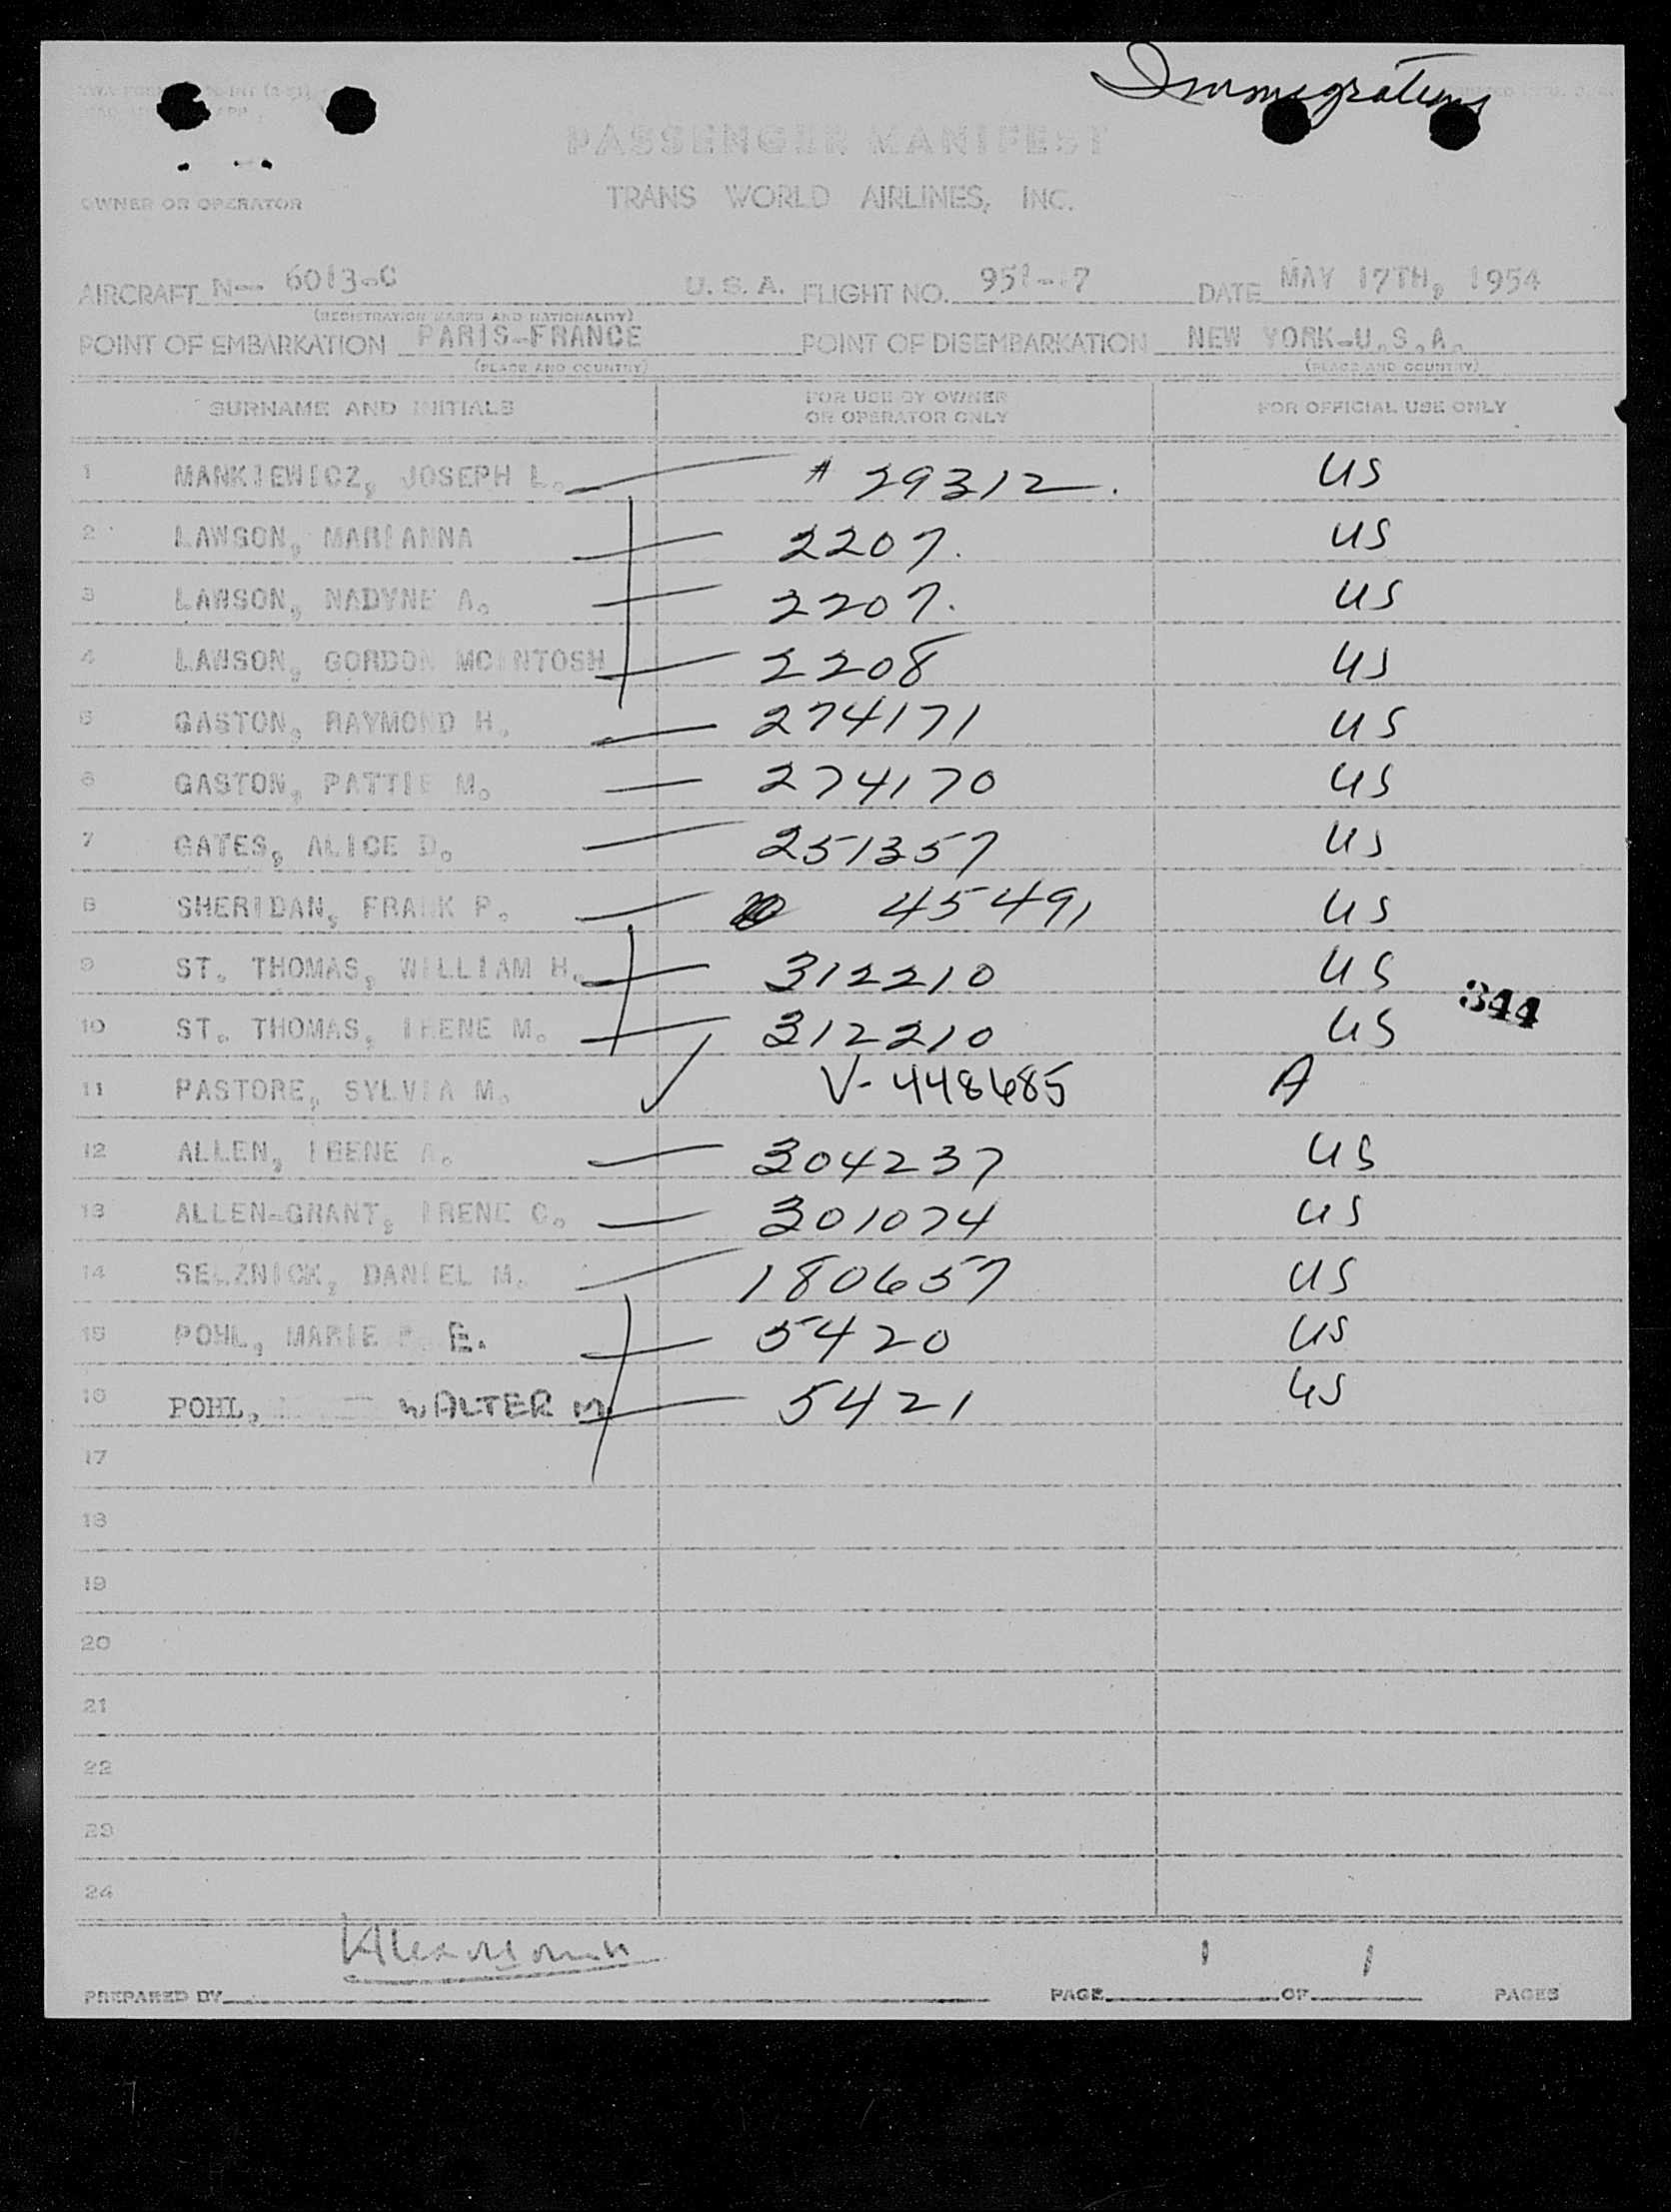 Immigrations
PASSENGER MANIFEST
OWNER OR OPERATOR TRANS WORLD AIRLINES, INC.
AIRCRAFT N-- 6013-C U. S. A. FLIGHT NO. DATE MAY 17TH, 1954
(REGISTRATION MARKS AND NATIONALITY)
POINT OF EMBARKATION PARIS-FRANCE POINT OF DISEMBARKATION NEW YORK-U.S.A.
(PLACE AND COUNTRY) (PLACE AND COUNTRY)
SURNAME AND INITIALS FOR USE BY OWNER OR OPERATOR ONLY FOR OFFICIAL USE ONLY
1 MANKIEWICZ, JOSEPH L. # 29312. US
2 LAWSON, MARIANNA 2207. US
3 LAWSON, NADYNE A. 2207. US
4 LAWSON, GORDON MCINTOSH 2208 US
5 GASTON, RAYMOND H. 274171 US
6 GASTON, PATTIE M. 274170 US
7 GATES, ALICE D. 251357 US
8 SHERIDAN, FRANK P. 45491 US
9 ST. THOMAS, WILLIAM H. 312210 US
344
10 ST. THOMAS, IRENE M. 312210 US
11 PASTORE, SYLVIA M. V-448685 A
12 ALLEN, IRENE A. 304237 US
13 ALLEN-GRANT, IRENE C. 301074 US
14 SELZNICK, DANIEL M. 180657 US
15 POHL, MARIE E. 5420 US
16 POHL, WALTER M. 5421 US
17
18
19
20
21
22
23
24
PREPARED BY PAGE 1 OF 1 PAGES